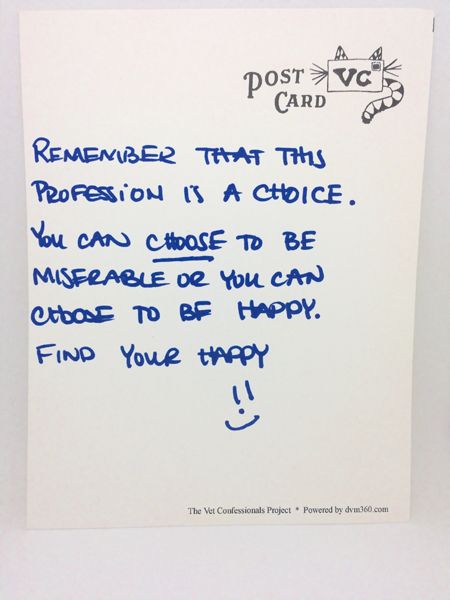 POST CARD
VC
REMEMBER THAT THIS
PROFESSION IS A CHOICE.
YOU CAN CHOOSE TO BE
MISERABLE OR YOU CAN
CHOOSE TO BE HAPPY.
FIND YOUR HAPPY
!!
The Vet Confessionals Project * Powered by dvm360.com